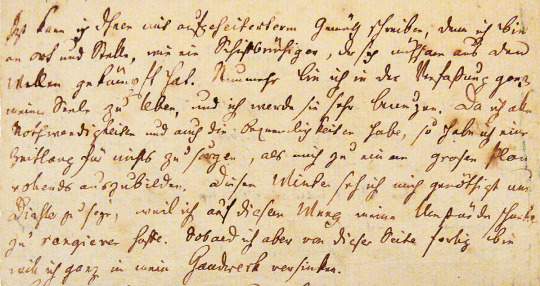 Jetzt kann ich Ihnen mit aufgeheitertem Gemüth schreiben, denn ich bin
an ort und Stelle, wie ein Schiffbrüchiger, der sich mühsam aus den
Wellen gekämpft hat. Nunmehr bin ich in der Verfaßung ganz
meiner Seele zu leben, und ich werde sie sehr benuzen. Da ich alle
Nothwendigkeiten und auch die Bequemlichkeiten habe, so habe ich eine
Zeitlang für nichts zu sorgen, als mich zu einem großen Plan
vollends auszubilden. Diesen Winter seh ich mich genöthigt nur
Dichter zu seyn, weil ich auf diesem Weeg meine Umstände schneller
zu rangieren hoffe. Sobald ich aber von dieser Seite fertig bin
will ich ganz in mein Handwerk versinken.